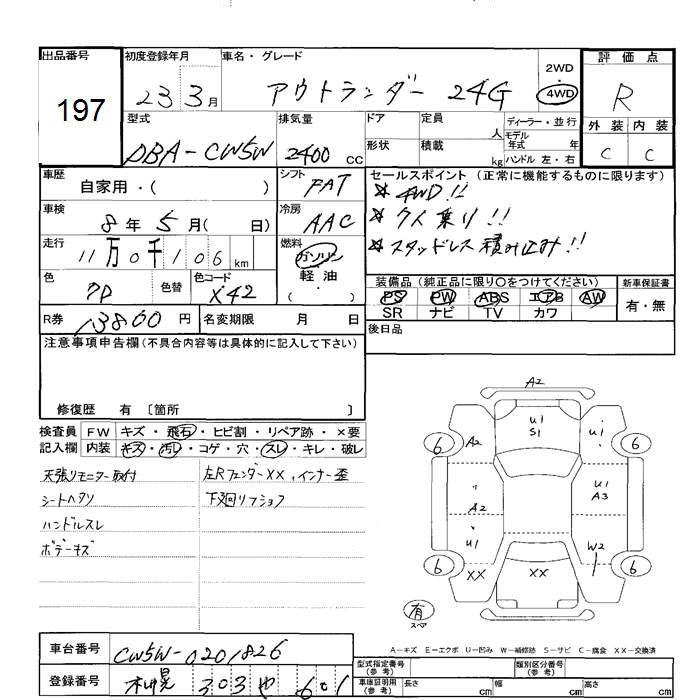 出品番号 初度登録年月 車名・グレード 2WD 評価点
197 23 3月 アウトランダー 24G 4WD R
型式 排気量 ドア 定員 ディーラー・並行 外装 内装
人 モデル年式 年
DBA-CW5W 2400 cc 形状 積載 kg ハンドル 左・右 C C
車歴 自家用・( ) シフト FAT セールスポイント (正常に機能するものに限ります)
☆ 4WD!!
車検 8年 5月( 日) 冷房 AAC ☆ 7人乗り!!
走行 11万0千106 km 燃料 ガソリン・軽油・( ) ☆ スタッドレス積み込み!!
色 色替 色コード X42 装備品(純正品に限り○をつけてください) 新車保証書
PS PW ABS エアB AW 有・無
SR ナビ TV カワ
R券 13860 円 名変期限 月 日 後日品
注意事項申告欄(不具合内容等は具体的に記入して下さい)
修復歴 有 〔箇所 〕
検査員 FW キズ・飛石・ヒビ割・リペア跡・×要
記入欄 内装 キズ・汚レ・コゲ・穴・スレ・キレ・破レ
天張りモニター取付 左RフェンダーXX、インナー歪
シートヘタリ 下廻りリフレショフ
ハンドルスレ
ボデーキズ
A2
U1 S1
U1
A2
6 6
U1 A3
A2
U1
W2
6 6
XX XX
有
スペア
A-キズ E-エクボ U-凹み W-補修跡 S-サビ C-腐食 XX-交換済
車台番号 CW5W-0201826
型式指定番号(参考) 類別区分番号(参考)
登録番号 札幌 303 や 601
車庫証明用(参考) 長さ cm 幅 cm 高さ cm